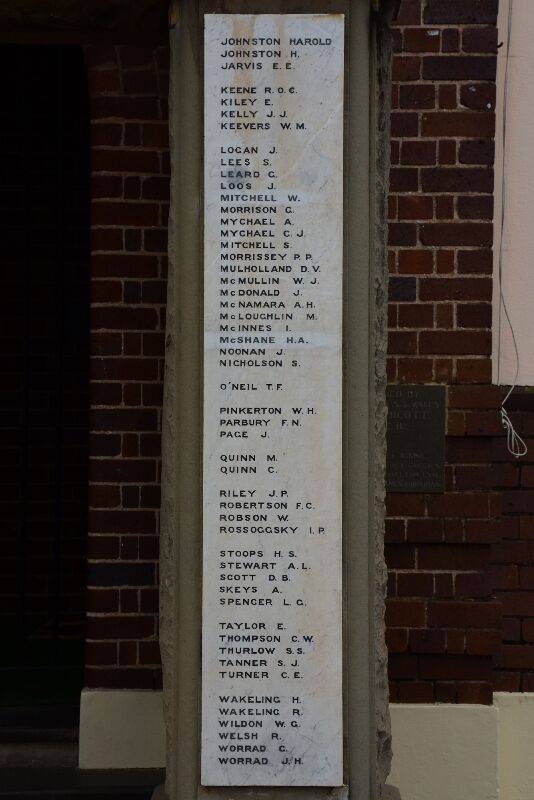 JOHNSTON HAROLD
JOHNSTON H.
JARVIS E. E.
KEENE R. O. C.
KILEY E.
KELLY J. J.
KEEVERS W. M.
LOGAN J.
LEES S.
LEARD G.
LOOS J.
MITCHELL W.
MORRISON G.
MYCHAEL A.
MYCHAEL C. J.
MITCHELL S.
MORRISSEY P. P.
MULHOLLAND D. V.
McMULLIN W. J.
McDONALD J.
McNAMARA A. H.
McLOUGHLIN M.
McINNES I.
McSHANE H.A.
NOONAN J.
NICHOLSON S.
O'NEIL T. F.
PINKERTON W. H.
PARBURY F. N.
PAGE J.
QUINN M.
QUINN C.
RILEY J. P.
ROBERTSON F. C.
ROBSON W.
ROSSOGGSKY I. P.
STOOPS H. S.
STEWART A. L.
SCOTT D. B.
SKEYS A.
SPENCER L. G.
TAYLOR E.
THOMPSON C. W.
THURLOW S. S.
TANNER S. J.
TURNER C. E.
WAKELING H.
WAKELING R.
WILDON W. G.
WELSH R.
WORRAD C.
WORRAD J. H.